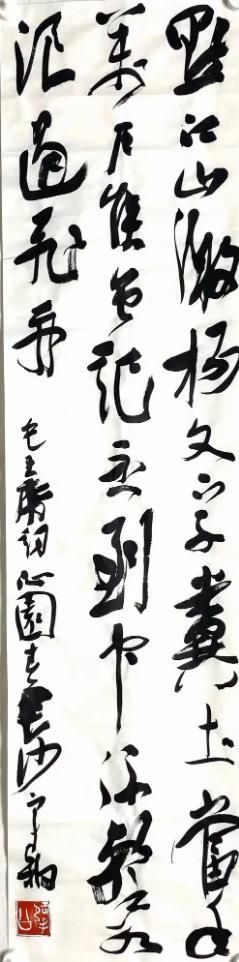 點江山激揚文字糞土當年
萬户侯曾記否到中流擊水
浪遏飛舟
毛主席詞沁園春長沙